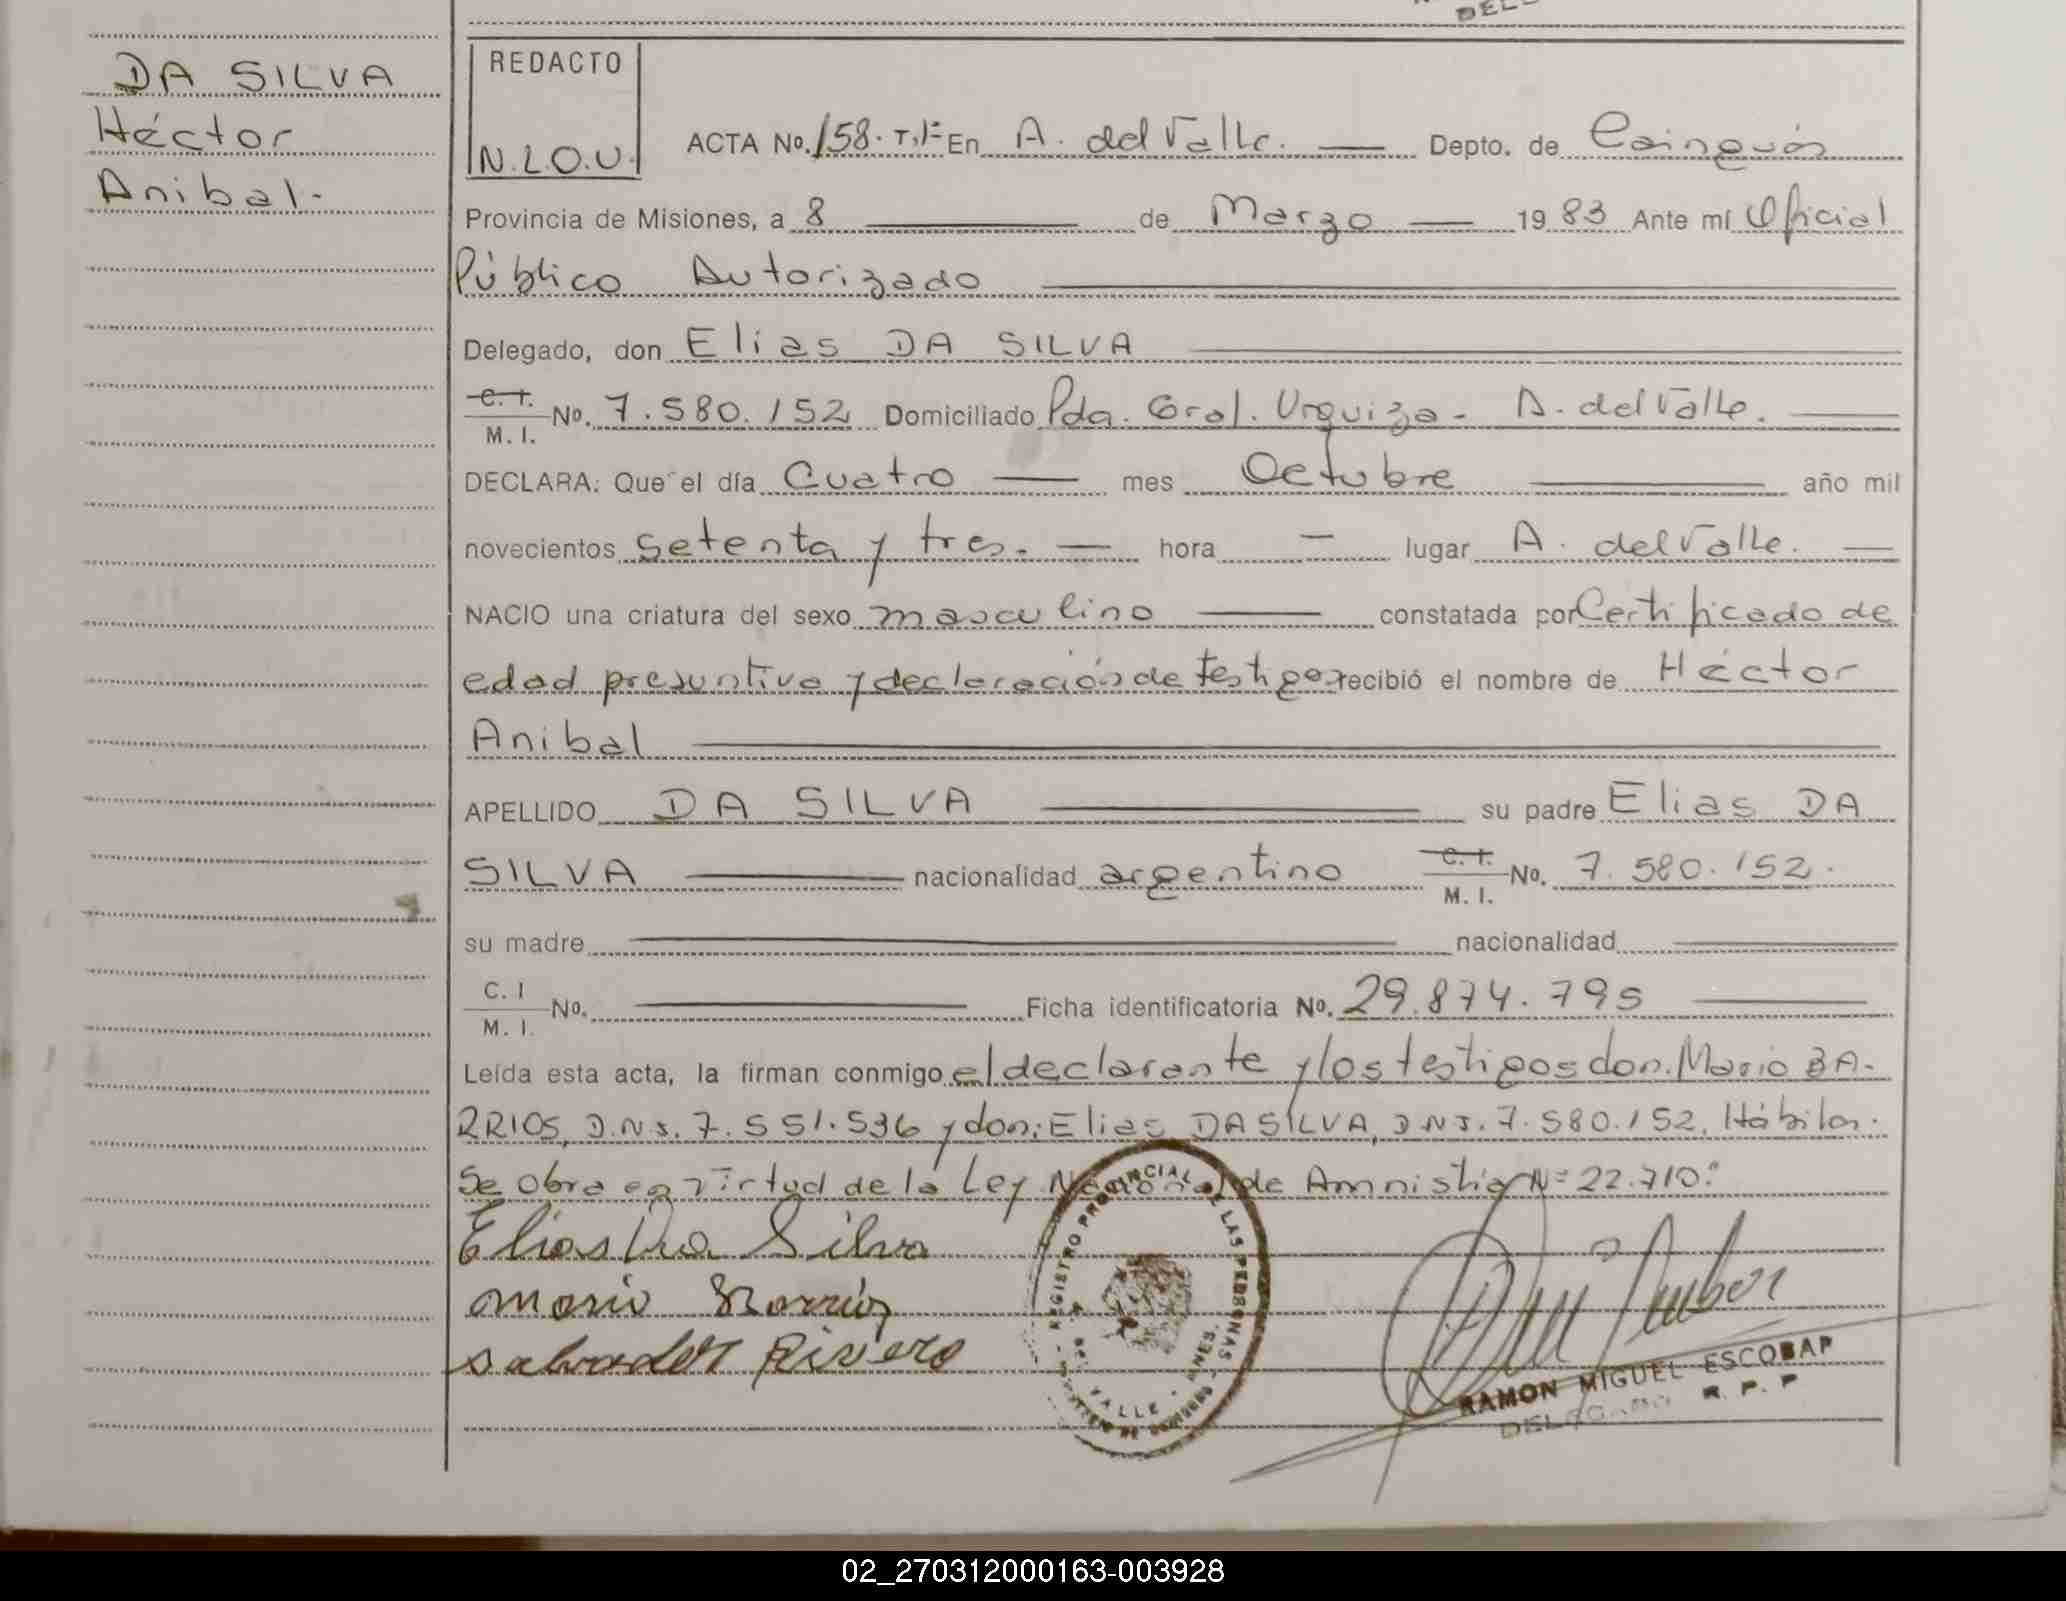 DA SILVA
Héctor
Anibal.-
REDACTO
N.L.O.U.
ACTA No. 158. T.1º En A. del Valle. Depto. de Cainguás
Provincia de Misiones, a 8 de Marzo 1983 Ante mí Oficial
Público Autorizado
Delegado, don Elias DA SILVA
C. I. / M. I. No. 7.580.152 Domiciliado Pda. Gral. Urquiza - A. del Valle.
DECLARA: Que el día Cuatro mes Octubre año mil
novecientos setenta y tres. hora — lugar A. del Valle.
NACIO una criatura del sexo masculino constatada por Certificado de
edad presuntiva y declaración de testigos recibió el nombre de Héctor
Anibal
APELLIDO DA SILVA su padre Elias DA
SILVA nacionalidad argentino C. I. / M. I. No. 7.580.152.
su madre nacionalidad
C. I / M. I. No. Ficha identificatoria No. 29.874.795
Leída esta acta, la firman conmigo el declarante y los testigos don. Mario BA-
RRIOS, D.N.I. 7.551.536 y don: Elias DA SILVA, D.N.I. 7.580.152. Hábiles.
Se obra en virtud de la Ley Nacional de Amnistía Nº 22.710.-
Elias Da Silva
Mario Barrios
Salvador Rivero
REGISTRO PROVINCIAL DE LAS PERSONAS
DEL VALLE
RAMON MIGUEL ESCOBAR
DELEGADO R. P. P
02_270312000163-003928